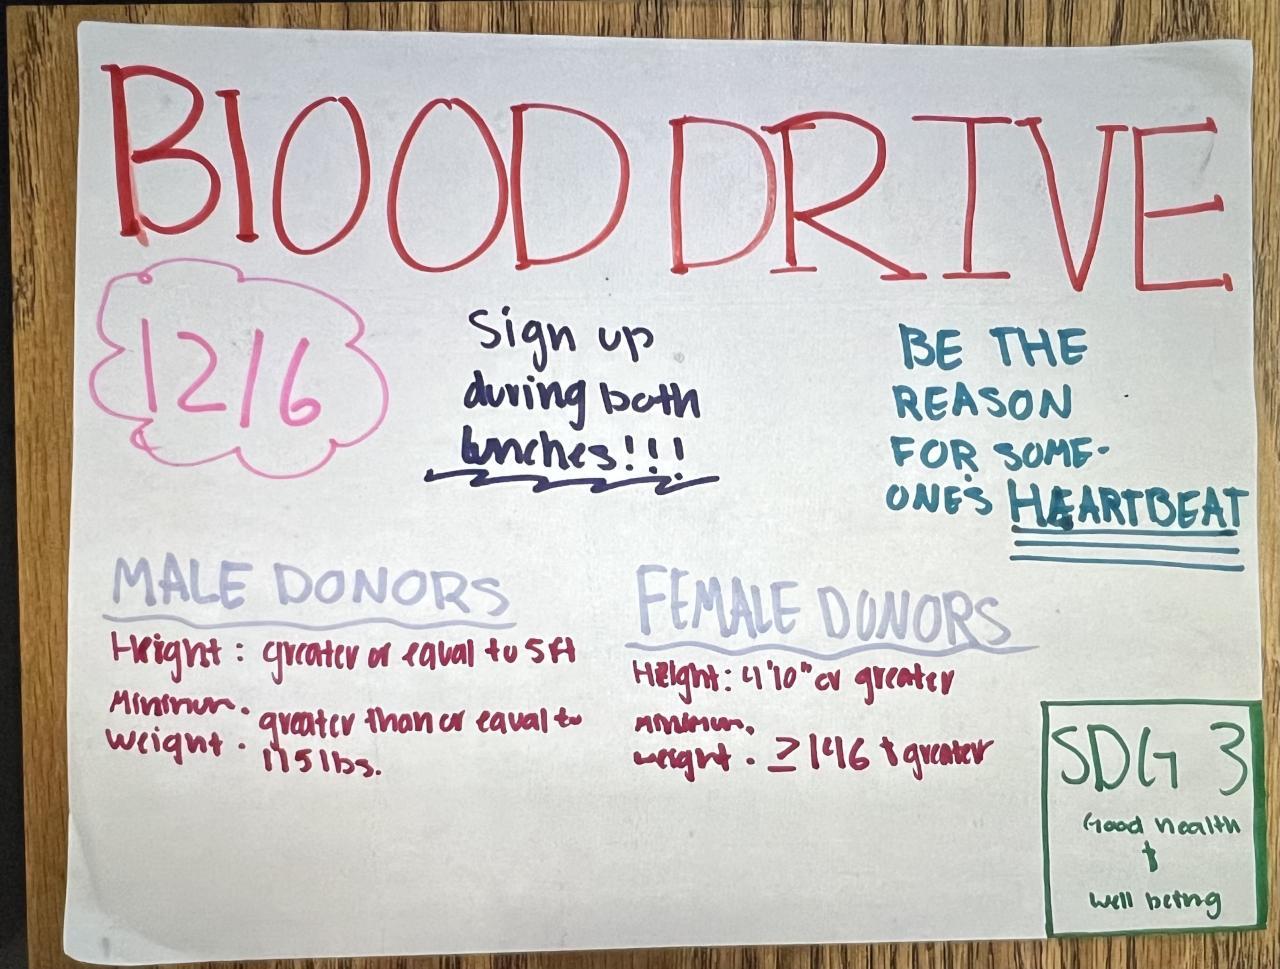 BLOOD DRIVE
12/6
Sign up
during both
lunches!!!
BE THE
REASON
FOR SOME-
ONE'S HEARTBEAT
MALE DONORS
Height: greater or equal to 5ft
Minimum
weight: greater than or equal to
115 lbs.
FEMALE DONORS
Height: 4'10" or greater
minimum
weight: ≥ 146 & greater
SDG 3
Good health
&
well being